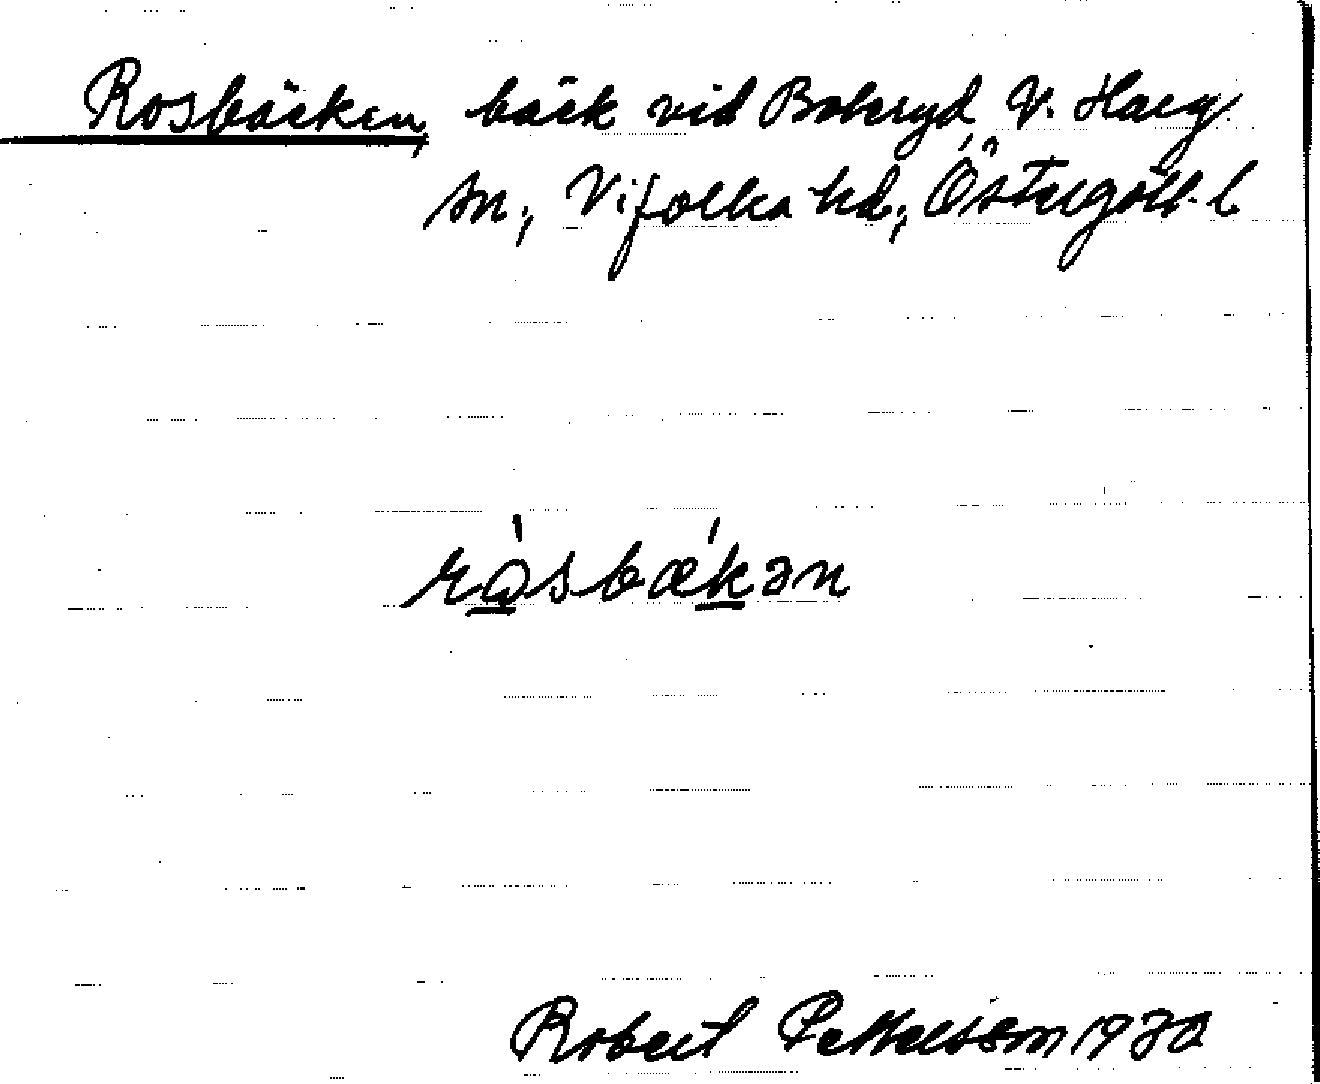 Rosbäcken, bäck vid Bokeryd, V. Harg
sn, Vifolka hd, Östergötl. l
ròsbækən
Robert Pettersson 1970